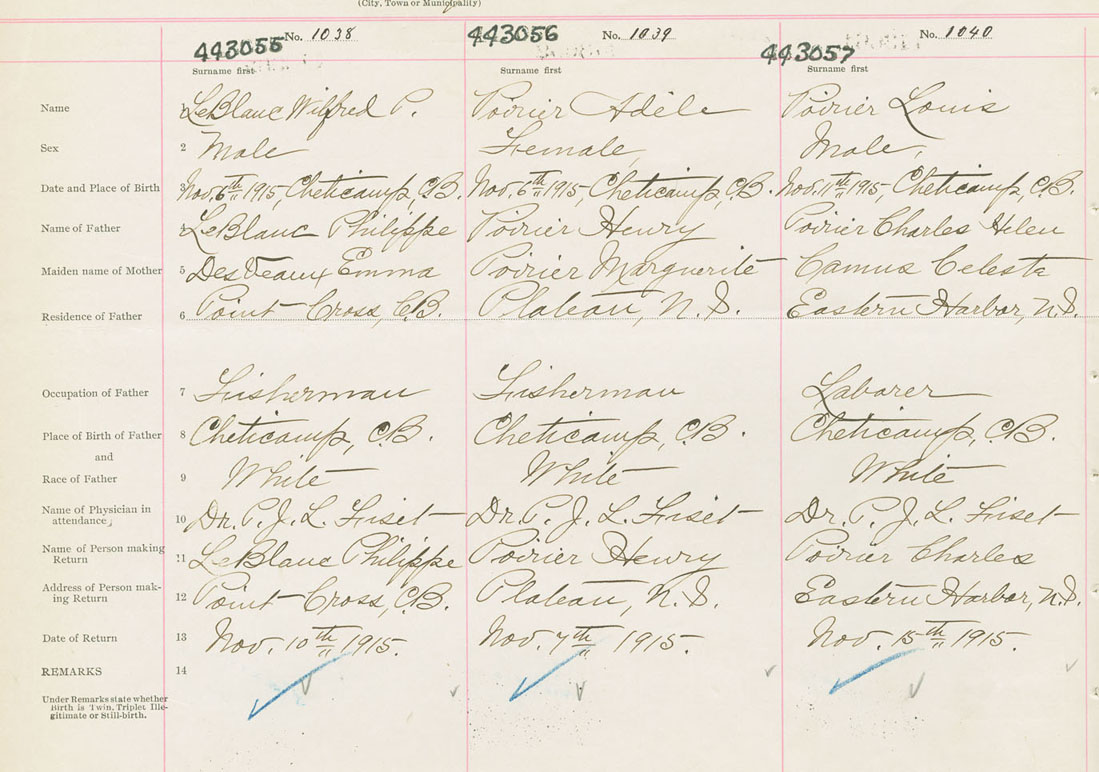 (City, Town or Municipality)
443055 No. 1038 443056 No. 1039 443057 No. 1040
Surname first Surname first Surname first
Name 1 LeBlanc Wilfred P. Poirier Adèle Poirier Louis
Sex 2 Male Female Male,
Date and Place of Birth 3 Nov. 6th 1915, Cheticamp, C.B. Nov. 6th 1915, Cheticamp, C.B. Nov. 11th 1915, Cheticamp, C.B.
Name of Father 4 LeBlanc Philippe Poirier Henry Poirier Charles Helen
Maiden name of Mother 5 DesVeaux Emma Poirier Marguerite Camus Celesta
Residence of Father 6 Point Cross, C.B. Plateau, N.S. Eastern Harbor, N.S.
Occupation of Father 7 Fisherman Fisherman Laborer
Place of Birth of Father 8 Cheticamp, C.B. Cheticamp, C.B. Cheticamp, C.B.
and
Race of Father 9 White White White
Name of Physician in
attendance 10 Dr. P. J. L. Fiset Dr. P. J. L. Fiset Dr. P. J. L. Fiset
Name of Person making
Return 11 LeBlanc Philippe Poirier Henry Poirier Charles
Address of Person mak-
ing Return 12 Point Cross, C.B. Plateau, N.S. Eastern Harbor, N.S.
Date of Return 13 Nov. 10th 1915. Nov. 7th 1915. Nov. 15th 1915.
REMARKS 14
Under Remarks state whether
Birth is Twin, Triplet, Ille-
gitimate or Still-birth.